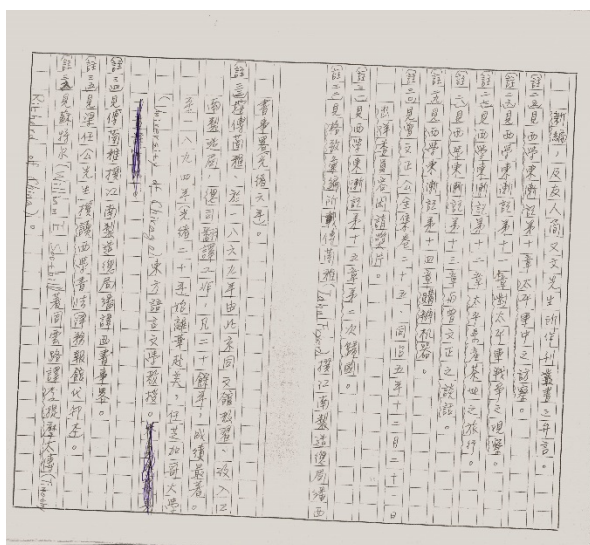 新編，及友人簡又文先生所作刊叢書之平言。
〔註二五〕見西學東漸記第十章，太平軍中之訪察。
〔註二六〕見西學東漸記第十一章對太平軍戰爭之觀察。
〔註二七〕見西學東漸記第十二章太平
〔註二八〕見西學東漸記第十三章與曾文正之談話。
〔註二九〕見西學東漸記第十四章購辦机器。
〔註三〇〕見曾文正公全集卷二十五，同治五年十二月二十一日
〔註三一〕見西學東漸記第十五章第二次歸國。
〔註三二〕見格致彙編所載傅蘭雅(John Fryer)撰江南製造總局繙西
書事畧光緒六年。
〔註三三〕傅蘭雅，於一八六九年由北京同文館教習，改入江
南製造局，得司翻譯工作，凡二十餘年。成績最著。
至一八九四年(光緒二十年)始離華赴美，任芝加哥大學
(University of Chicago)東方語言文學教授。
〔註三四〕見傅蘭雅撰江南製造總局繙譯西書事畧。
〔註三五〕見梁任公先生撰讀西學書法，時務報館代印本。
〔註三六〕見蘇特尔(William E. Soothill)著周雲路譯李提摩太傳(Timothy
Richard of China)。